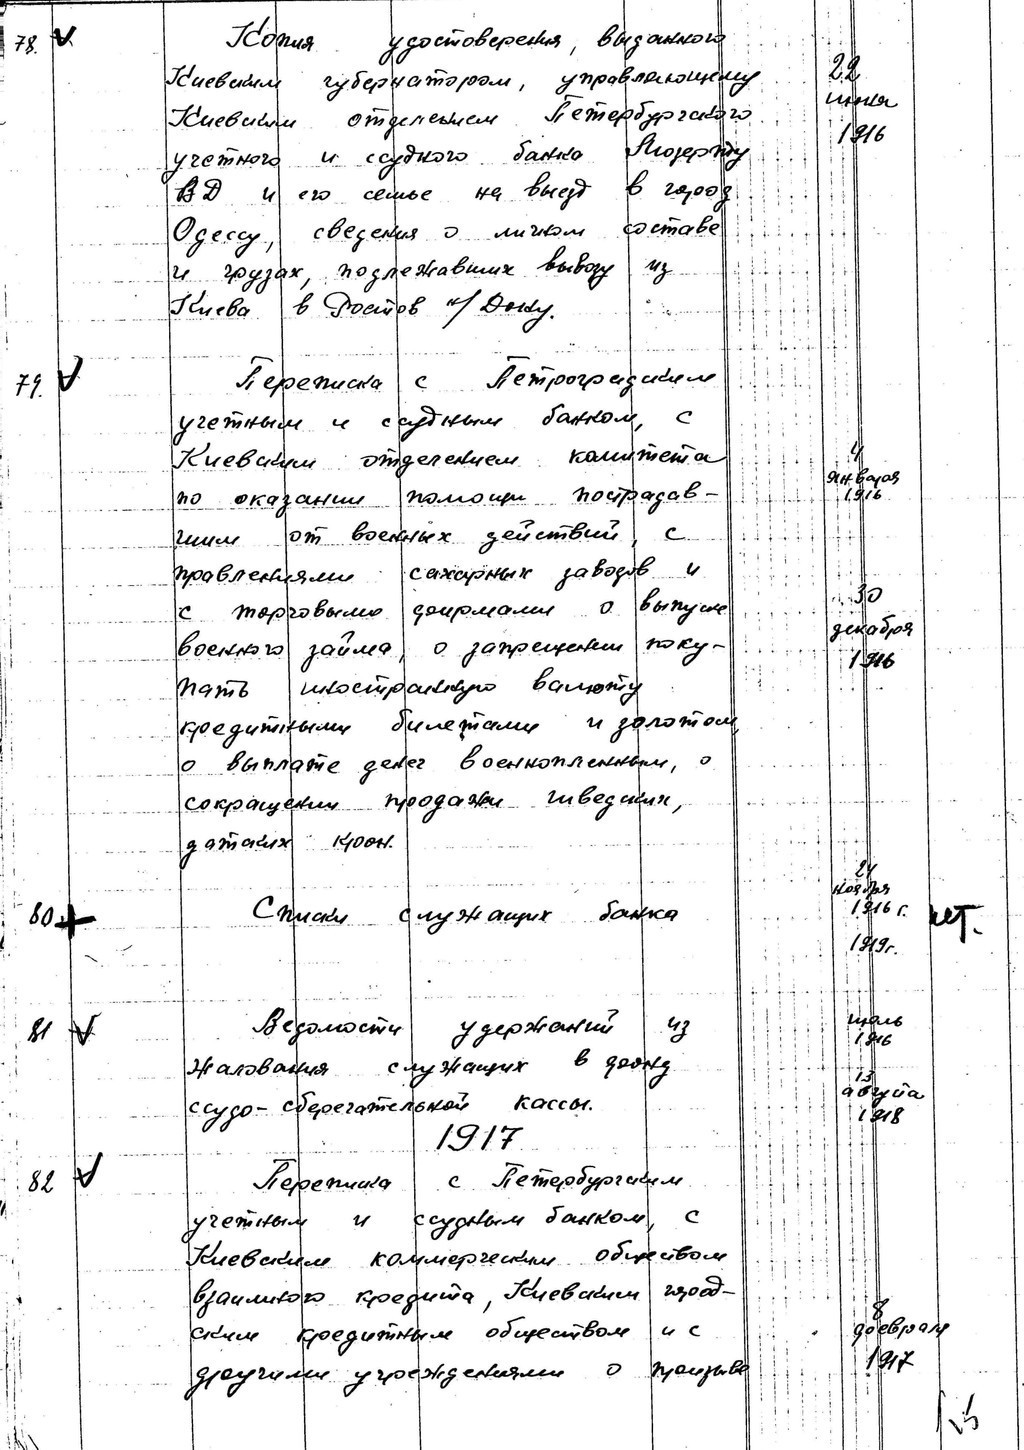 78. V Копия удостоверения, выданного
Киевским губернатором, управляющему 22
Киевским отделением Петербургского июня
учетного и ссудного банка 1916
ВД и его семье на выезд в город
Одессу, сведения о личном составе
и грузах, подлежавших вывозу из
Киева в Ростов н/Дону.
79. V Переписка с Петроградским
учетным и ссудным банком, с
Киевским отделением комитета 4
по оказании помощи пострадав- января
1916
шим от военных действий, с
правлениями сахарных заводов и
с торговыми фирмами о выпуске 30
военного займа, о запрещении поку- декабря
пать иностранную валюту 1916
кредитными билетами и золотом,
о выплате денег военнопленным, о
сокращении продажи шведских,
датских крон.
80 + Списки служащих банка 24
ноября
1916 г.
1919г.
81 V Ведомости удержаний из июль
1916
жалования служащих в фонд 13
ссудо-сберегательной кассы. августа
1918
1917
82 V Переписка с Петербургским
учетным и ссудным банком, с
Киевским коммерческим обществом
взаимного кредита, Киевским город-
ским кредитным обществом и с 8
февраля
другими учреждениями о призыве 1917